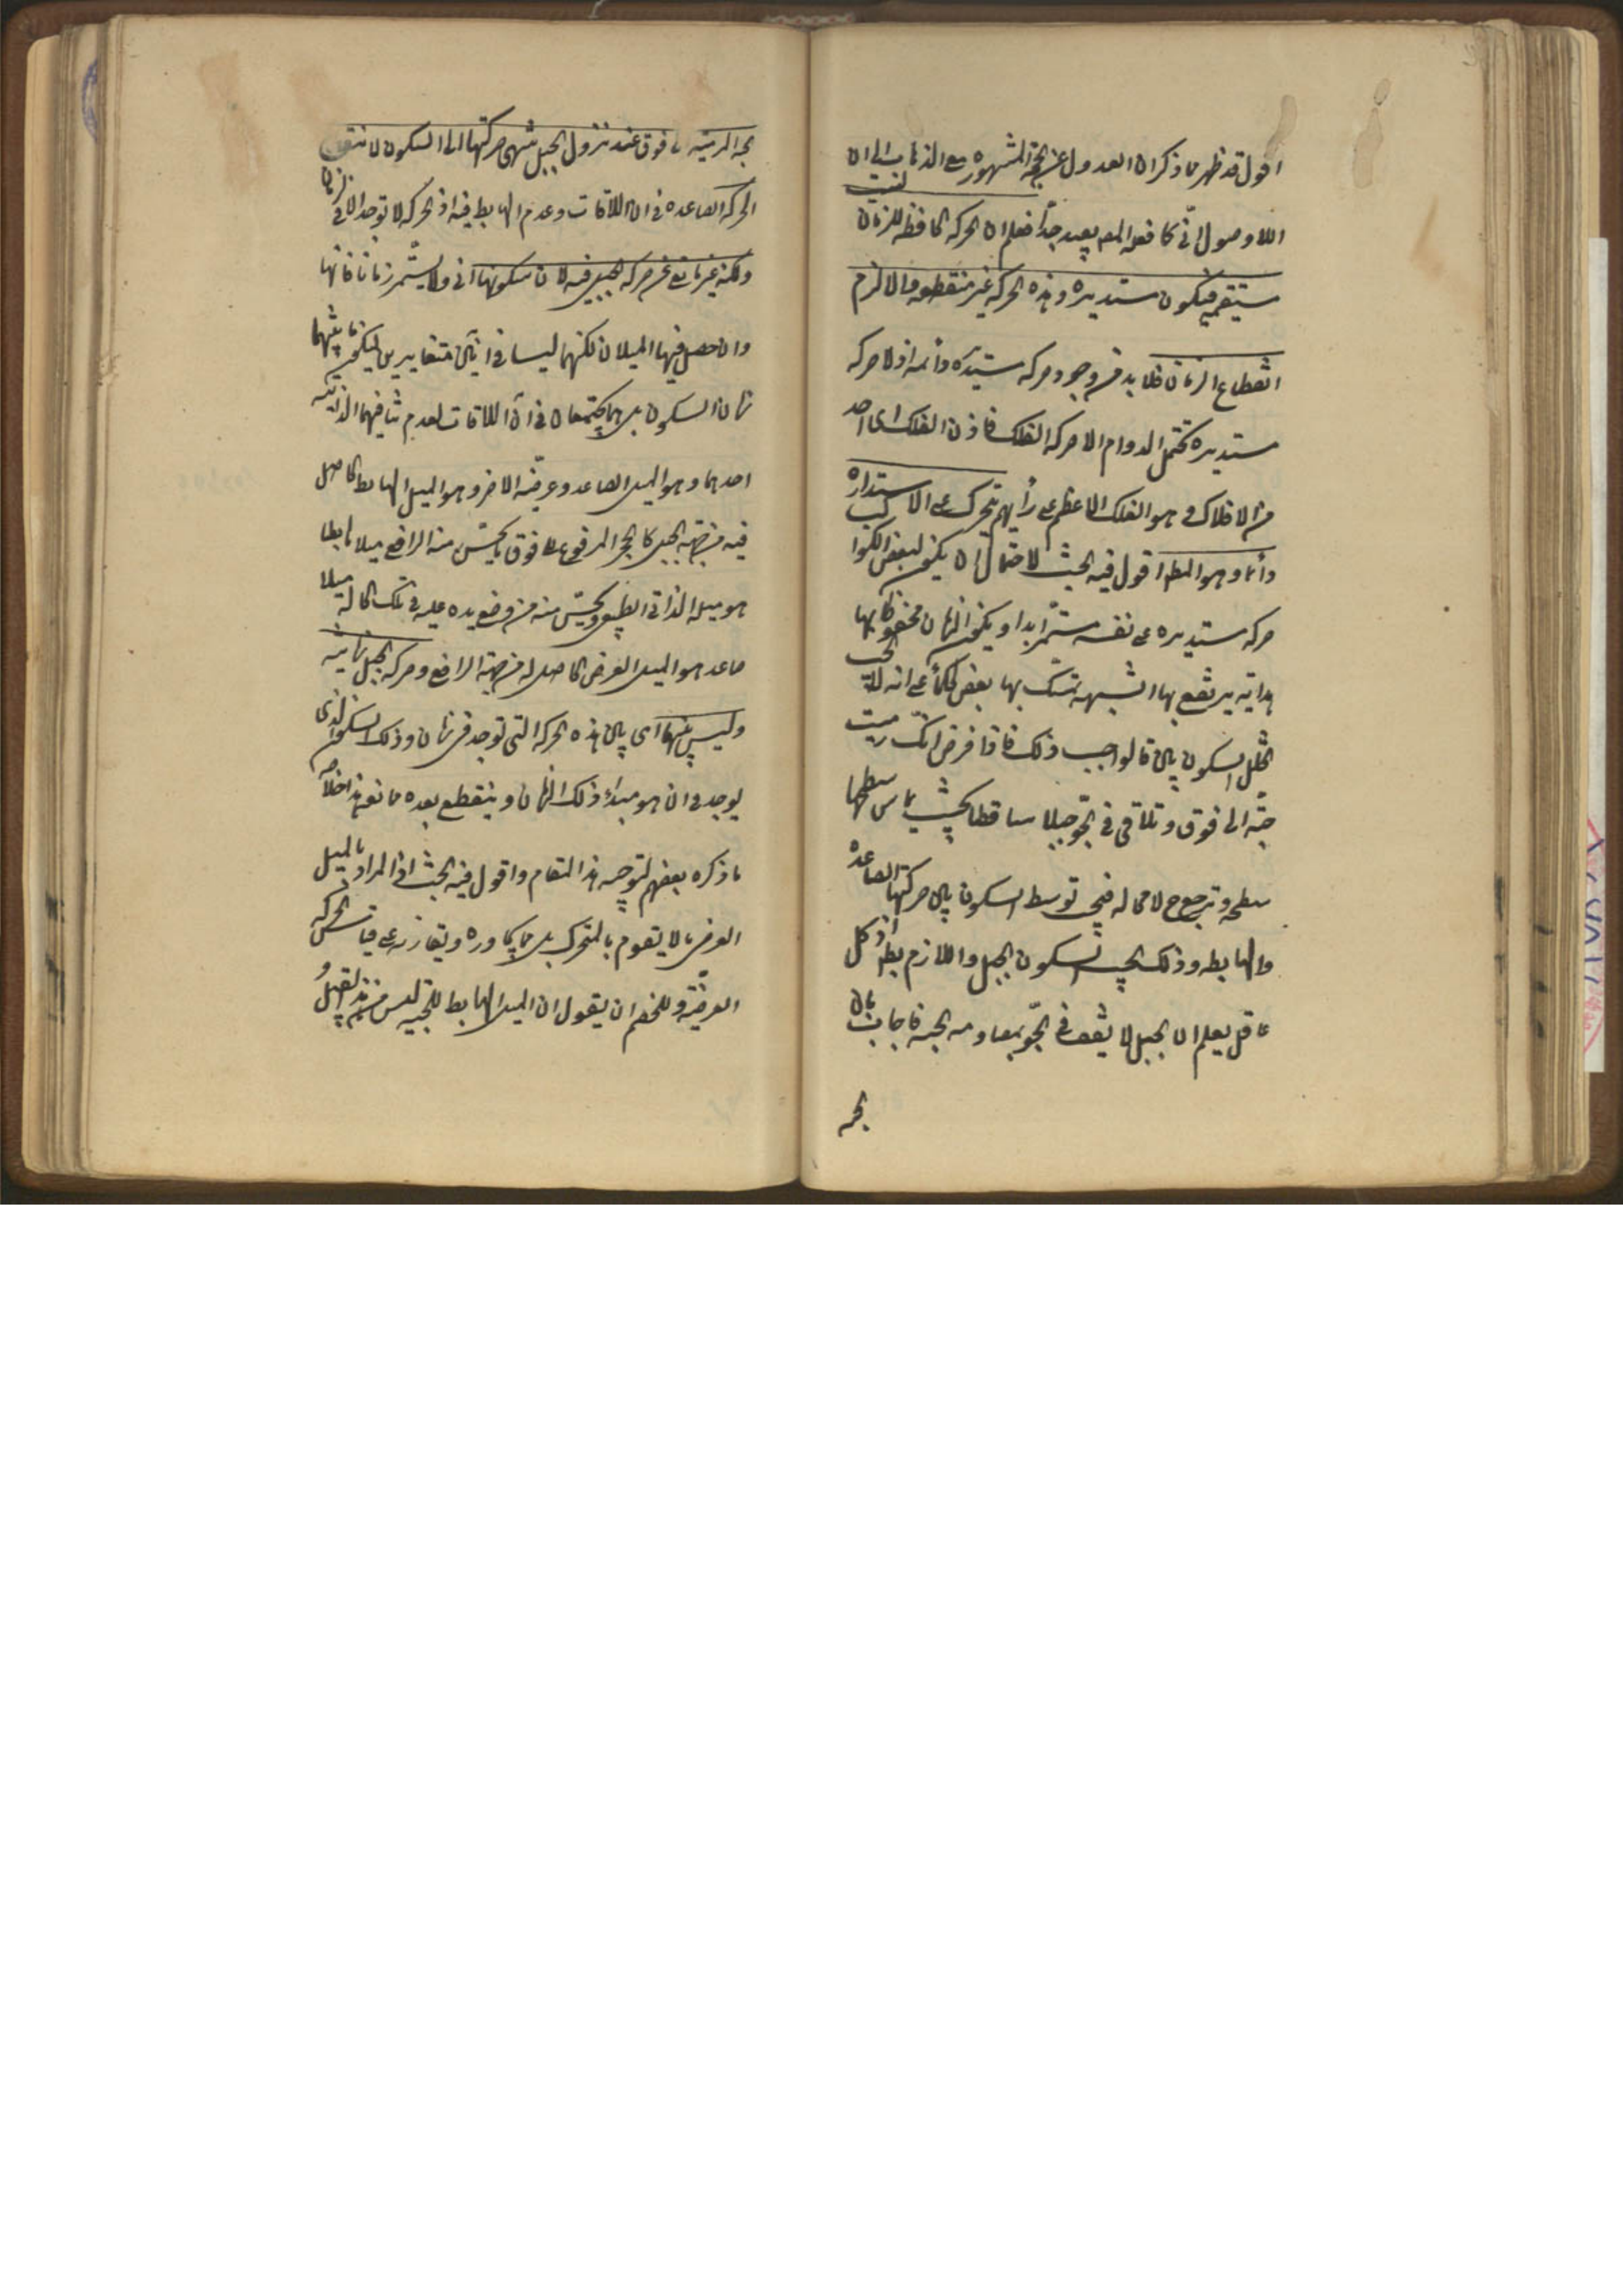 اقول قد ظهر مما ذكر ان العدول عن الحجة المشهوره مع الذهاب الى ان
اللاوصول آنى كما فعله المصـ بعيد جدا فعلم ان الحركه الحافظه للزمان ليست
مستقيمه فتكون مستديره وهذه الحركه غير منقطعه والا لزم
انقطاع الزمان فلا بد من وجود حركه مستديره دائمه اذ لا حركه
مستديره تحتمل الدوام الا حركه الفلك فاذن الفلك اى احد
من الافلاك وهو الفلك الاعظم على رأيهم يتحرك على الاستداره
دائما وهو المط اقول فيه بحث لاحتمال ان يكون لبعض الكواكب
حركه مستديره على نفسه مستمر ابدا ويكون الزمان محفوظا بها
هدايه يرتفع بها الشبهه تمسك بها بعض الحكماء على انه لا يجب
تخلل السكون بين قالوا وجب ذلك فاذا فرض انك رميت
حبّه الى فوق وتلاقى فى الجوّ جبلا ساقطا بحيث يماس سطحها
سطحه وترجع ح لا محاله فيجب توسط السكون بين حركتها الصاعده
والهابطه وذلك يوجب سكون الجبل واللازم بط اذ كل
عاقل يعلم ان الجبل لا يقف فى الجوّ بمصادمه الحبه فاجاب بان
الحبه
الحبه المرميه الى فوق عند نزول الجبل ينتهى حركتها الى السكون لانتفاء
الحركه الصاعده فى آن الملاقات وعدم الهابط فيه اذ الحركه لا توجد الا فى الزمان
ولكنه غير مانع عن حركه الجبل فيه لان سكونها آنى ولا يستمر زمانا فانها
وان حصل فيها الميلان لكنهما ليسا فى آنين متغايرين ليكون بينهما
زمان السكون بل هما يجتمعان فى آن الملاقات لعدم تنافيهما لذاتيه
احدهما وهو الميل الصاعد وعرضيه الاخر وهو الميل الهابط الحاصل
فيه من جهه الجبل كالحجر المرفوع على فوق يحسّ منه الرافع ميلا هابطا
هو ميله الذاتى الطبيعى ويحسّ منه من وضع يده عليه فى تلك الحاله ميلا
صاعدا هو الميل العرضى الحاصل له من جهة الرافع وحركه الجبل زمانيه
وليس بينهما اى بين هذه الحركه التى توجد فى زمان وذلك السكون الذى
يوجد فى آن هو مبدأ ذلك الزمان وينقطع بعده ممانعه هذا خلاصه
ما ذكره بعضهم لتوجيه هذا المقام واقول فيه بحث اذ المراد بالميل
العرضى ما لا يقوم بالمتحرك بل بما يجاوره ويقارنه على قياس الحركه
العرضيّه وللخصم ان يقول ان الميل الهابط للحبه ليس من هذا القبيل